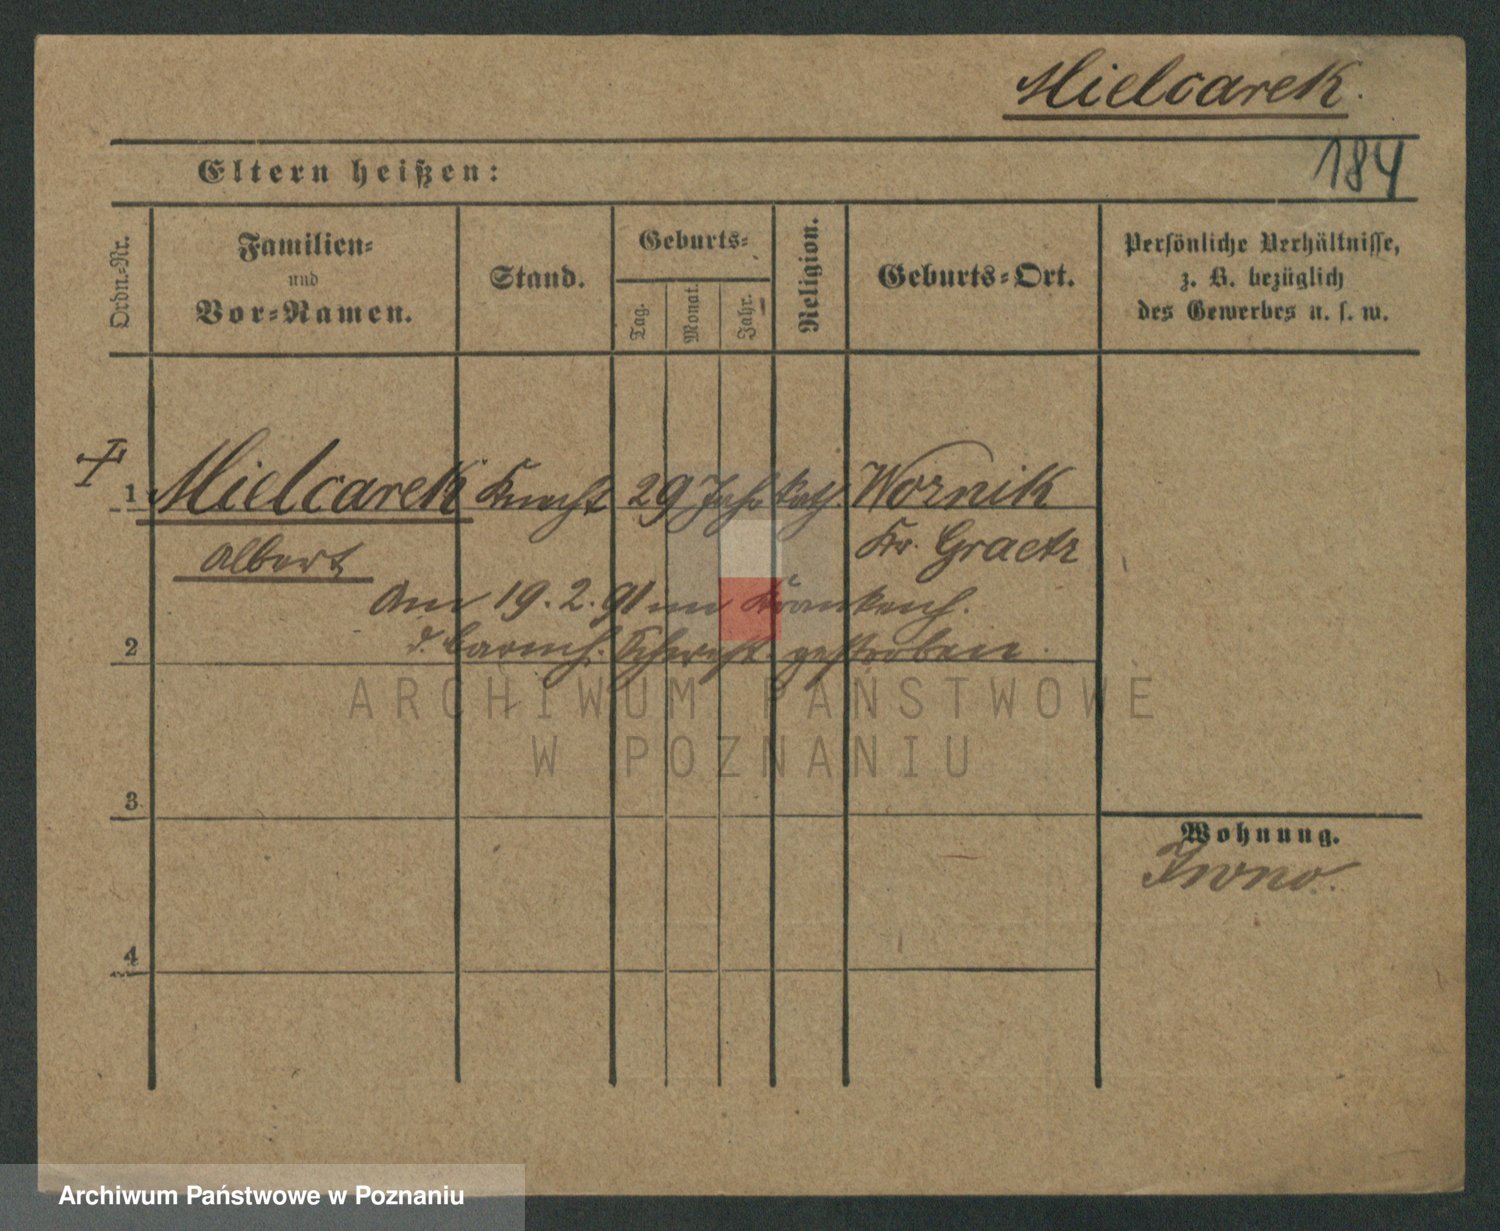 Mielcarek.
184
Eltern heißen:
Ordn.-Nr.
Familien-
und
Vor-Namen.
Stand.
Geburts-
Tag.
Monat.
Jahr.
Religion.
Geburts-Ort.
Persönliche Verhältnisse,
z. B. bezüglich
des Gewerbes u. s. w.
1 Mielcarek Knecht 29 Jahr kath. Woznik
Albert Kr. Graetz
Am 19. 2. 91 im Krankenh.
2 d. barmh. Schwest. gestorben.
ARCHIWUM PAŃSTWOWE
W POZNANIU
3
Wohnung.
4
Archiwum Państwowe w Poznaniu